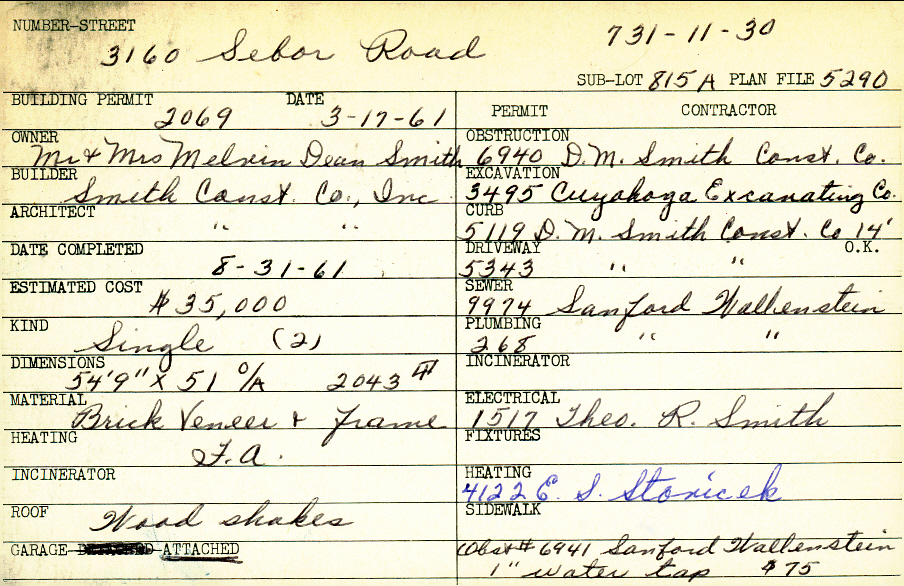 NUMBER-STREET
3160 Sebor Road 731-11-30
SUB-LOT 815A PLAN FILE 5290
BUILDING PERMIT DATE
2069 3-17-61
OWNER
Mr & Mrs Melvin Dean Smith
BUILDER
Smith Const. Co., Inc
ARCHITECT
" "
DATE COMPLETED
8-31-61
ESTIMATED COST
$35,000
KIND
Single (2)
DIMENSIONS
54'9" X 51 O/A 2043
MATERIAL
Brick Veneer & Frame
HEATING
F.A.
INCINERATOR
ROOF
Wood shakes
GARAGE DETACHED ATTACHED
PERMIT CONTRACTOR
OBSTRUCTION
6940 D.M. Smith Const. Co.
EXCAVATION
3495 Cuyahoga Excavating Co.
CURB
5119 D.M. Smith Const. Co 14'
DRIVEWAY O.K.
5343 " "
SEWER
9974 Sanford Walkenstein
PLUMBING
268 " "
INCINERATOR
ELECTRICAL
1517 Theo. R. Smith
FIXTURES
HEATING
4122 E. S. Storicek
SIDEWALK
Obst # 6941 Sanford Walkenstein
1" water tap $75